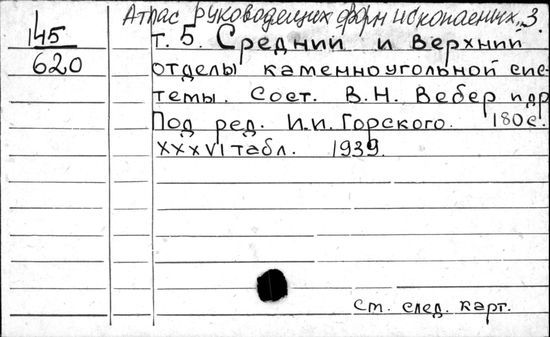 Атлас руководящих форм ископаемых. 3.
145
620
т. 5. Средний и верхний
отделы каменноугольной сис-
темы. Сост. В.Н. Вебер и др.
Под ред. И.И. Горского. 180 с.
XXXVI табл. 1939.
см. след. карт.